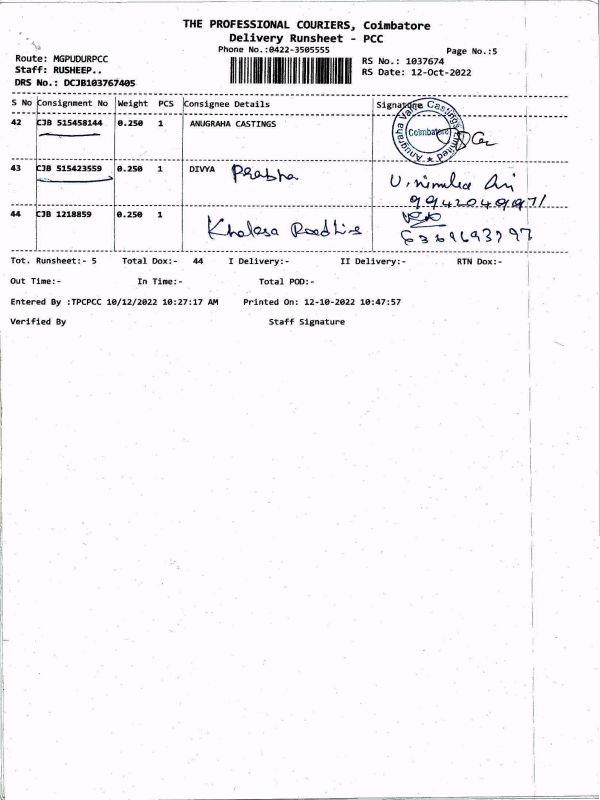 THE PROFESSIONAL COURIERS, Coimbatore
Delivery Runsheet - PCC
Phone No.:0422-3505555
Page No.:5
Route: MGPUDURPCC
RS No.: 1037674
Staff: RUSHEEP..
RS Date: 12-Oct-2022
DRS No.: DCJB103767405
S No Consignment No Weight PCS Consignee Details Signature
42 CJB 515458144 0.250 1 ANUGRAHA CASTINGS
Coimbatore
43 CJB 515423559 0.250 1 DIVYA Prabha
44 CJB 1218859 0.250 1
Tot. Runsheet:- 5 Total Dox:- 44 I Delivery:- II Delivery:- RTN Dox:-
Out Time:- In Time:- Total POD:-
Entered By :TPCPCC 10/12/2022 10:27:17 AM Printed On: 12-10-2022 10:47:57
Verified By Staff Signature